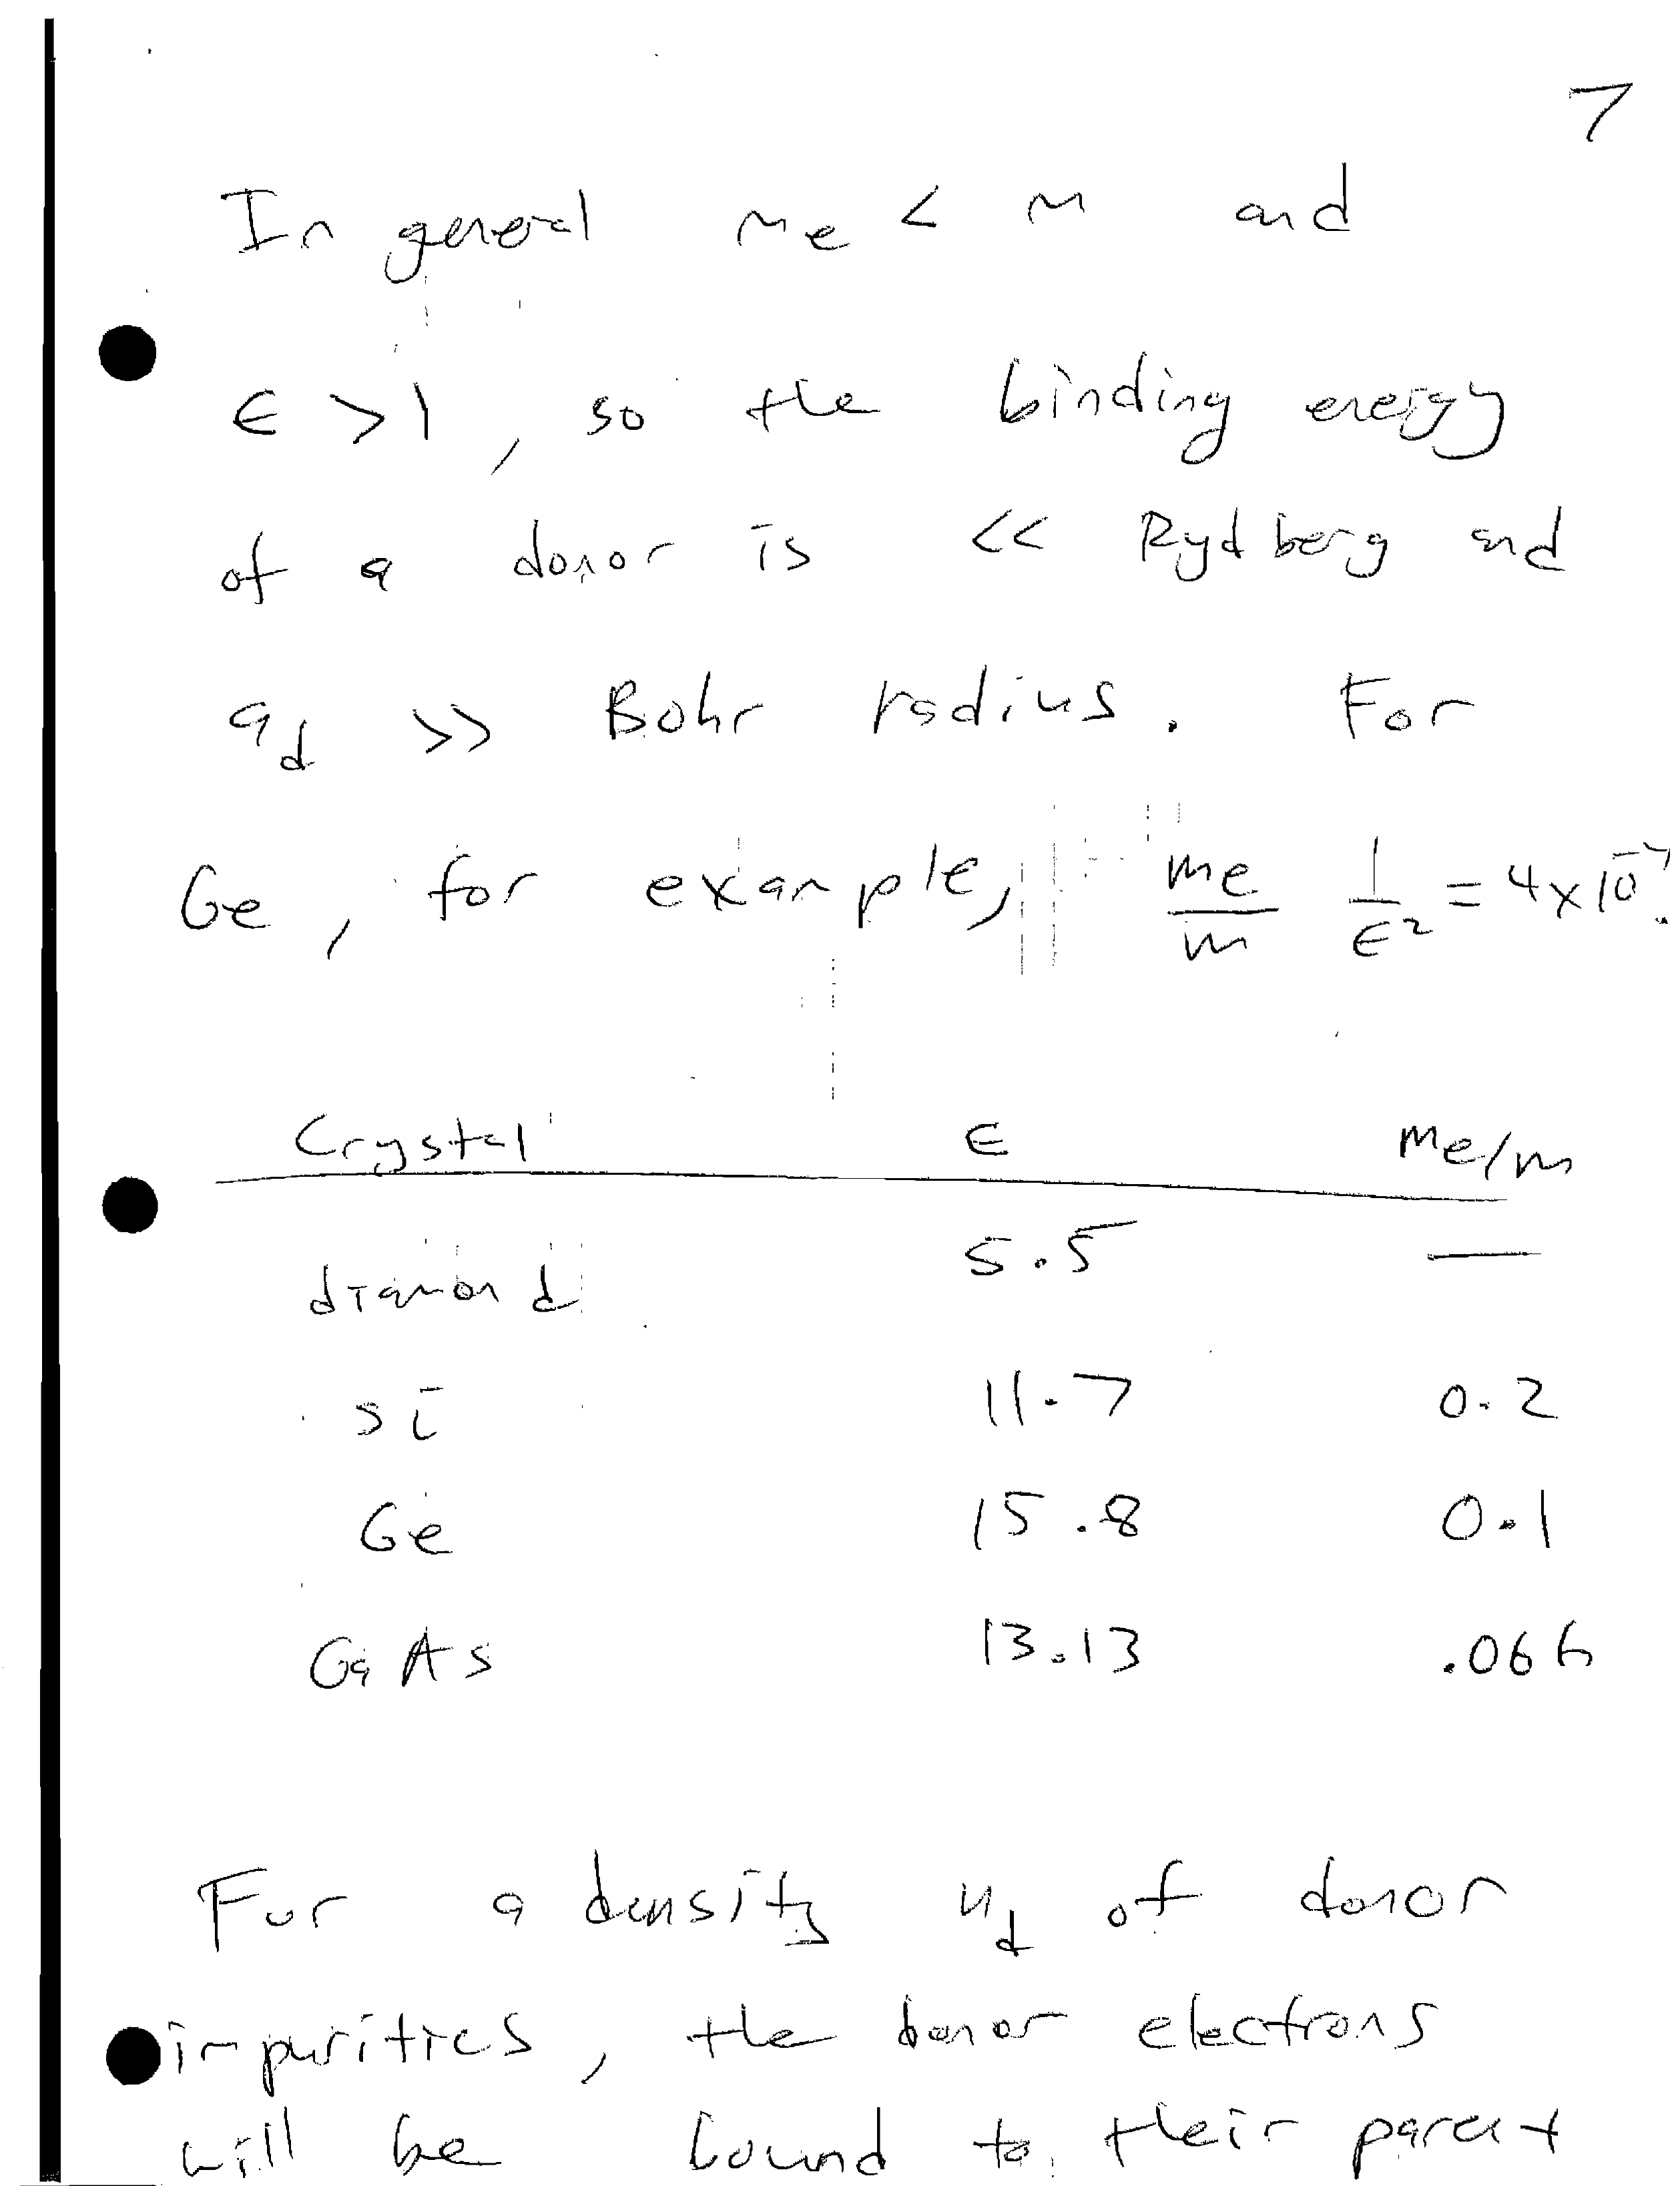 7
In general me < m and
ε > 1, so the binding energy
of a donor is << Rydberg and
a_d >> Bohr radius. For
Ge, for example, me/m 1/ε² = 4×10⁻⁴.
Crystal ε me/m
diamond 5.5 —
Si 11.7 0.2
Ge 15.8 0.1
GaAs 13.13 .066
For a density n_d of donor
impurities, the donor electrons
will be bound to their parent